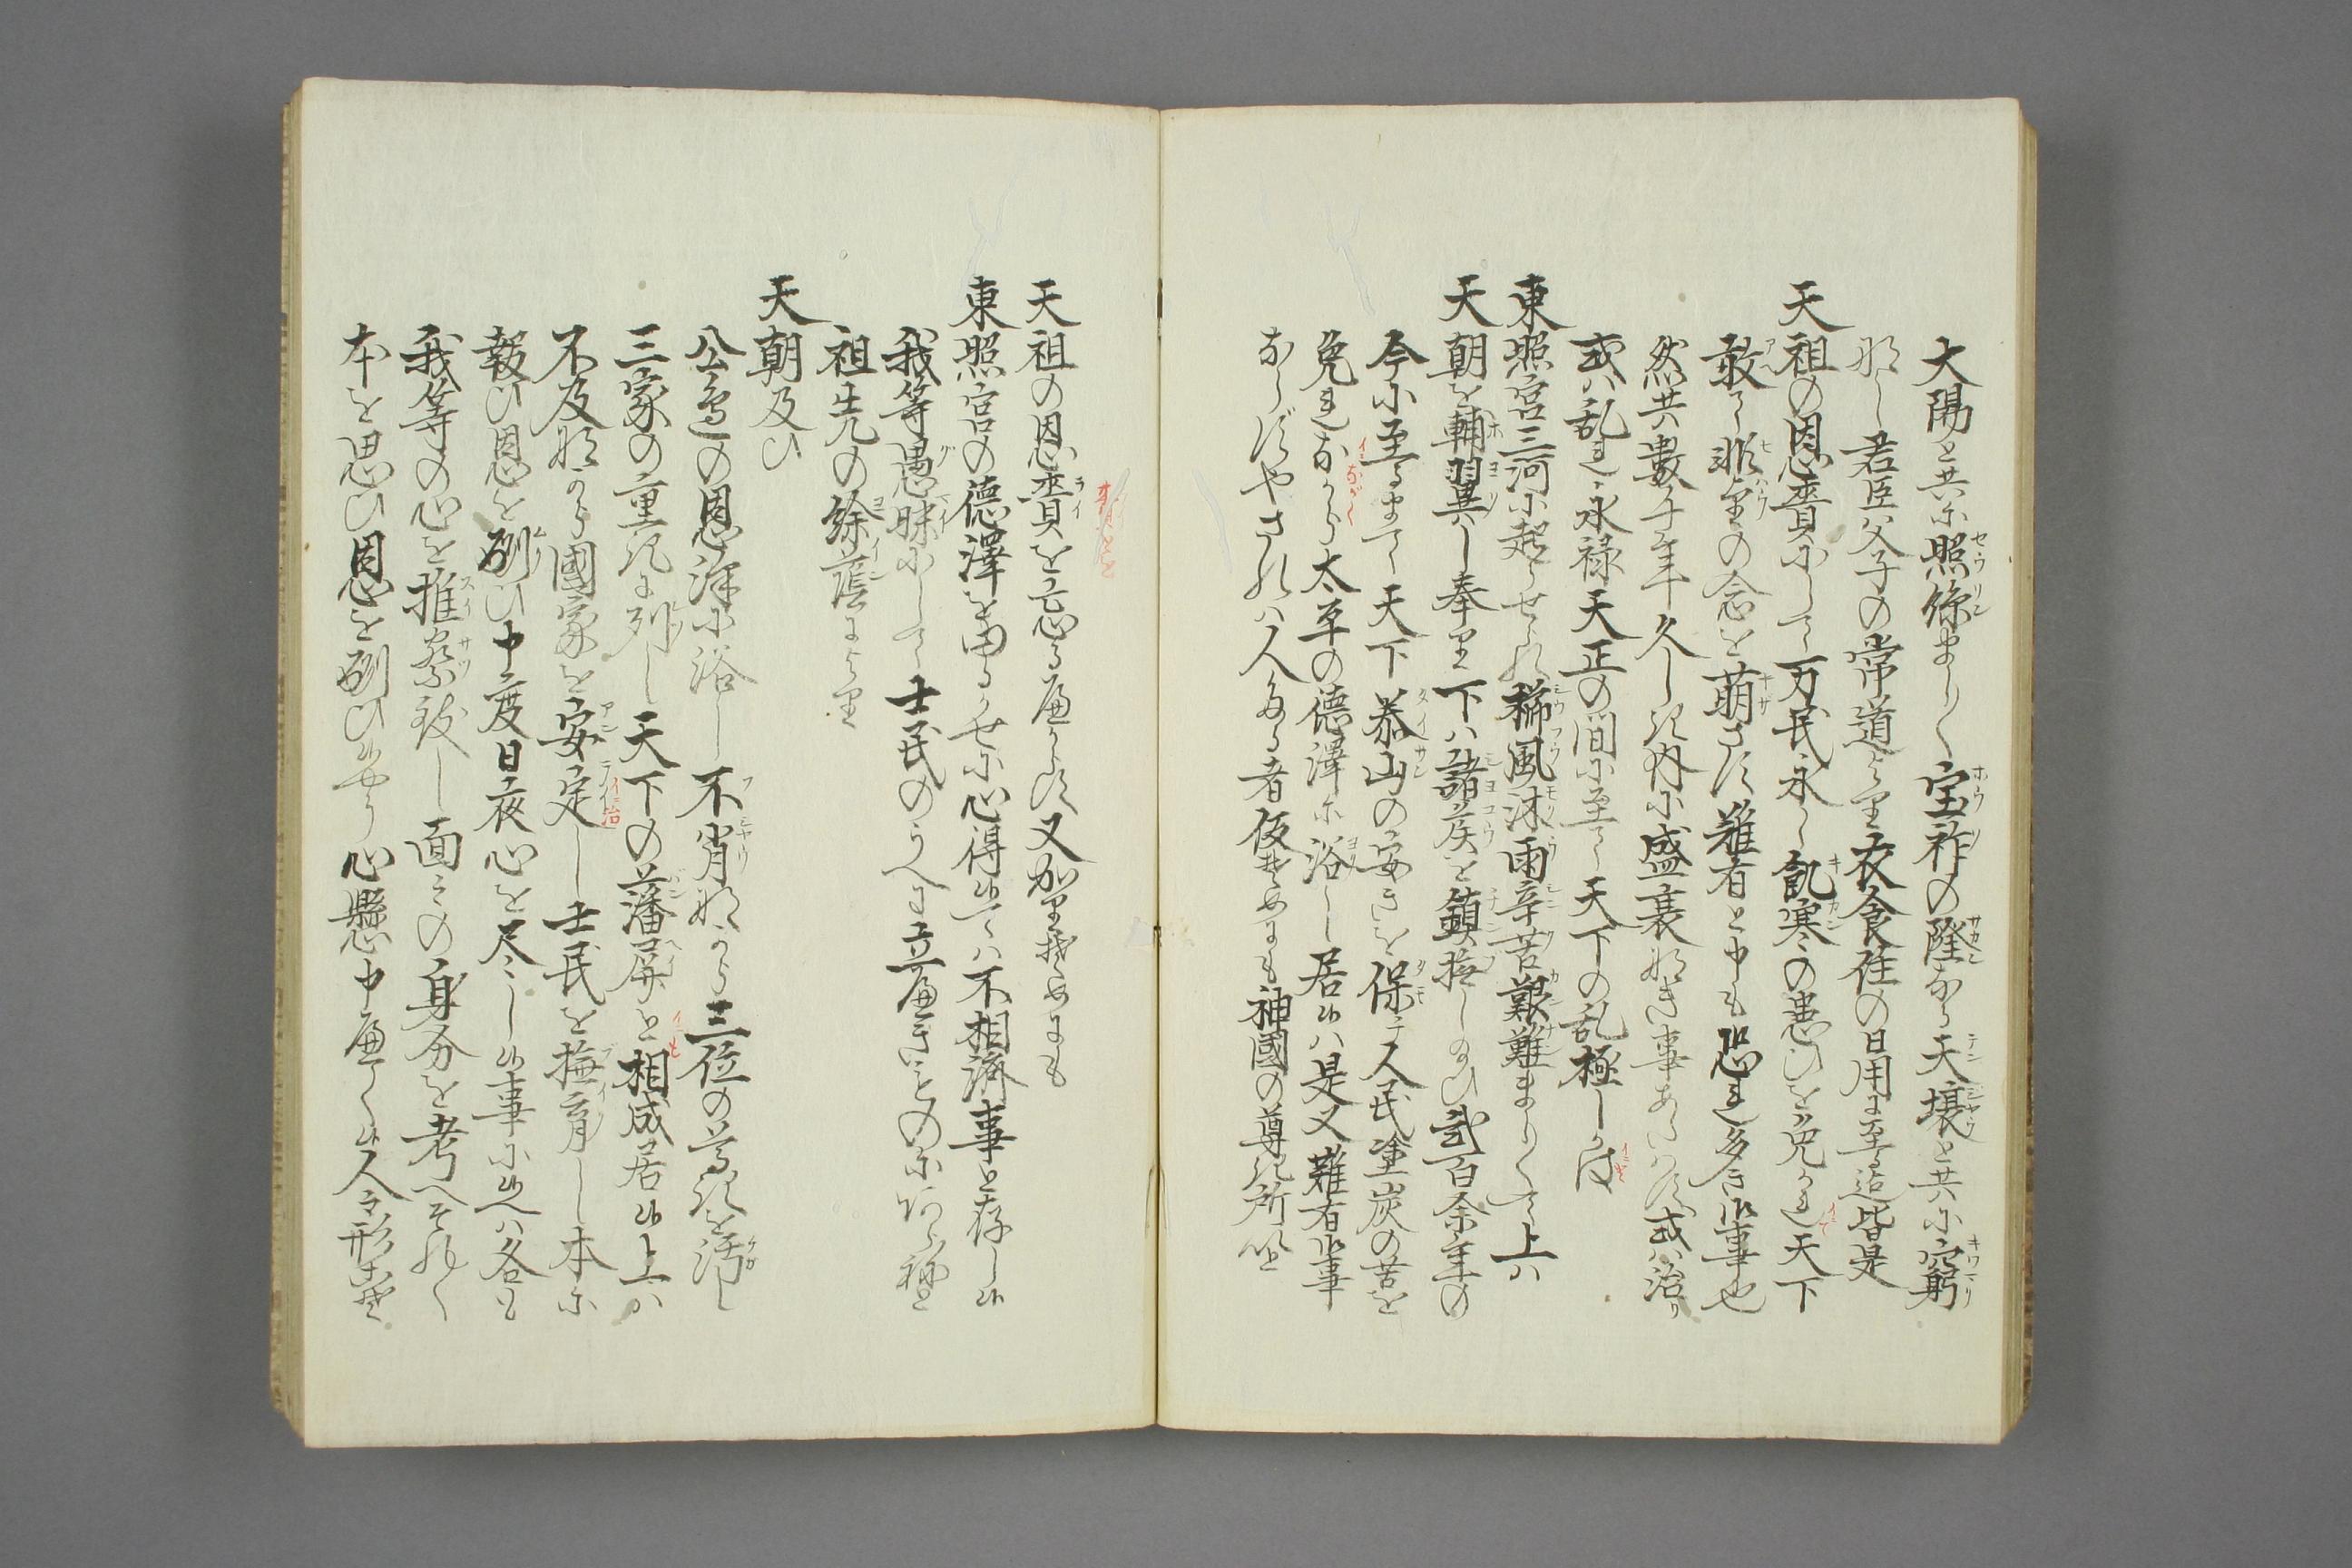 大陽と共に照臨ましく宝祚の隆なる天壌と共に窮
なし君臣父子の常道より衣食住の日用に至る迄皆是
天祖の恩賚にして万民永く飢寒の患ひを免かれ天下
敢て非望の念を萌さす難有と申も恐れ多き御事也
然共数千年久しき内に盛衰なき事あたはす或ハ治り
或ハ乱れ永禄天正の間に至て天下の乱極しかは
東照宮三河に起らせられ櫛風沐雨辛苦艱難ましくて上ハ
天朝を輔翼し奉り下ハ諸侯を鎮撫し給ひ弐百余年の
今に至るまて天下泰山の安きを保チ人民塗炭の苦を
免れなから太平の德澤に浴し居候ハ是又難有御事
ならすやされハ人たる者仮そめにも神國の尊き所以と
天祖の恩賚を忘る麁からす又かりそめにも
東照宮の德澤を
心得候てハ不相済事と存し候
我等愚昧にして士民のうへに立
祖先の餘蔭により
天朝及ひ
公邉の恩澤に浴し不肖なから三位の尊きを汚し
三家の重きに列し天下の藩屏と相成居候上ハ
不及なから國家を安定し士民を撫育し本に
報ひ恩を酬ひ申度日夜心を尽し候事に候へハ各も
我等の心を推察致し面々の身分を考へそれく
本を思ひ恩を酬ひ候やう心懸申
候